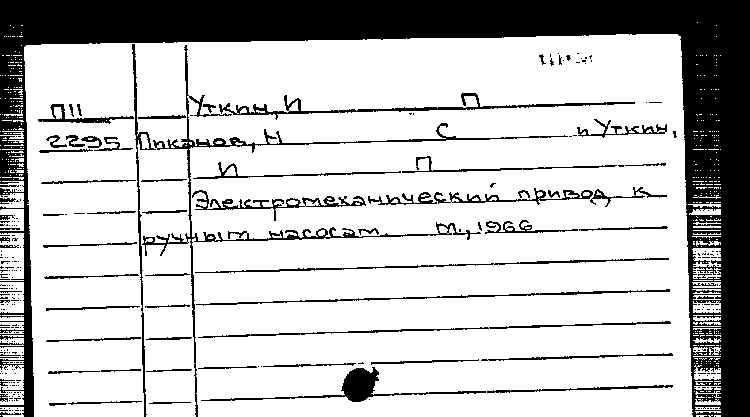 П11 Уткин, И П
2295 Пиканов, Н С и Уткин,
И П
Электромеханический привод к
ручным насосам. М., 1966